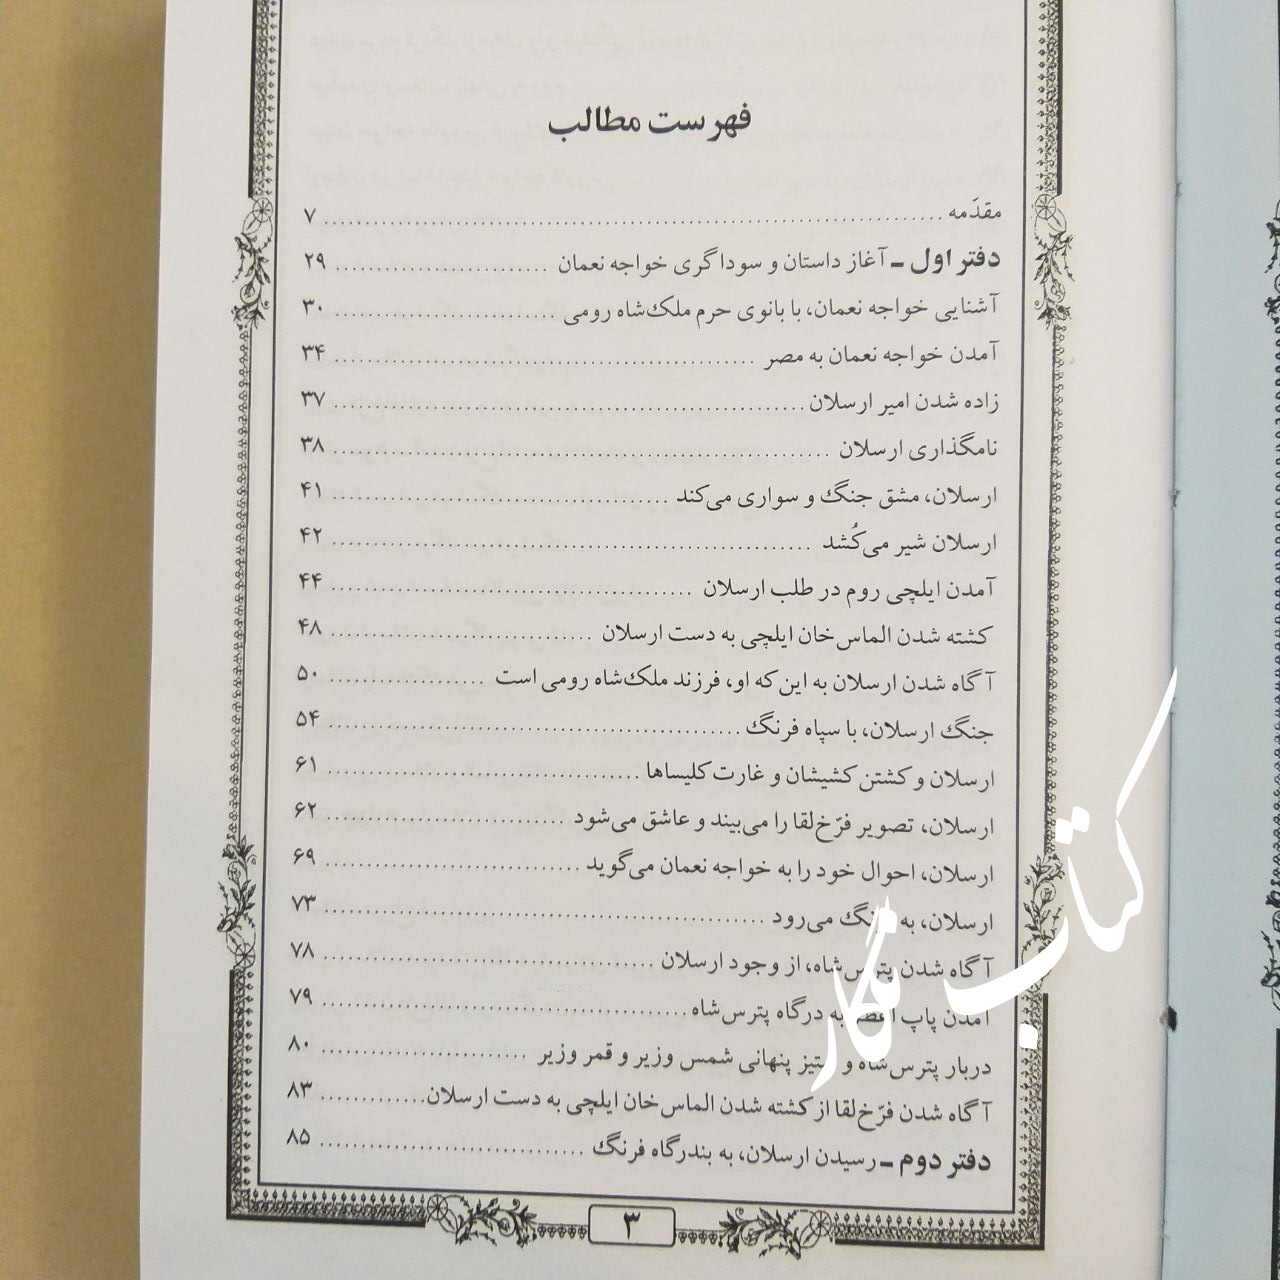 فهرست مطالب
مقدّمه ........ ۷
دفتر اول ـ آغاز داستان و سوداگری خواجه نعمان ........ ۲۹
آشنایی خواجه نعمان، با بانوی حرم ملک‌شاه رومی ........ ۳۰
آمدن خواجه نعمان به مصر ........ ۳۴
زاده شدن امیر ارسلان ........ ۳۷
نامگذاری ارسلان ........ ۳۸
ارسلان، مشق جنگ و سواری می‌کند ........ ۴۱
ارسلان شیر می‌کُشد ........ ۴۲
آمدن ایلچی روم در طلب ارسلان ........ ۴۴
کشته شدن الماس‌خان ایلچی به دست ارسلان ........ ۴۸
آگاه شدن ارسلان به این‌که او، فرزند ملک‌شاه رومی است ........ ۵۰
جنگ ارسلان، با سپاه فرنگ ........ ۵۴
ارسلان و کشتن کشیشان و غارت کلیساها ........ ۶۱
ارسلان، تصویر فرّخ‌لقا را می‌بیند و عاشق می‌شود ........ ۶۲
ارسلان، احوال خود را به خواجه نعمان می‌گوید ........ ۶۹
ارسلان، به فرنگ می‌رود ........ ۷۳
آگاه شدن پترس‌شاه، از وجود ارسلان ........ ۷۸
آمدن پاپ اعظم به درگاه پترس‌شاه ........ ۷۹
دربار پترس‌شاه و ستیز پنهانی شمس وزیر و قمر وزیر ........ ۸۰
آگاه شدن فرّخ‌لقا از کشته شدن الماس‌خان ایلچی به دست ارسلان ........ ۸۳
دفتر دوم ـ رسیدن ارسلان، به بندرگاه فرنگ ........ ۸۵
۳
کتاب نگار